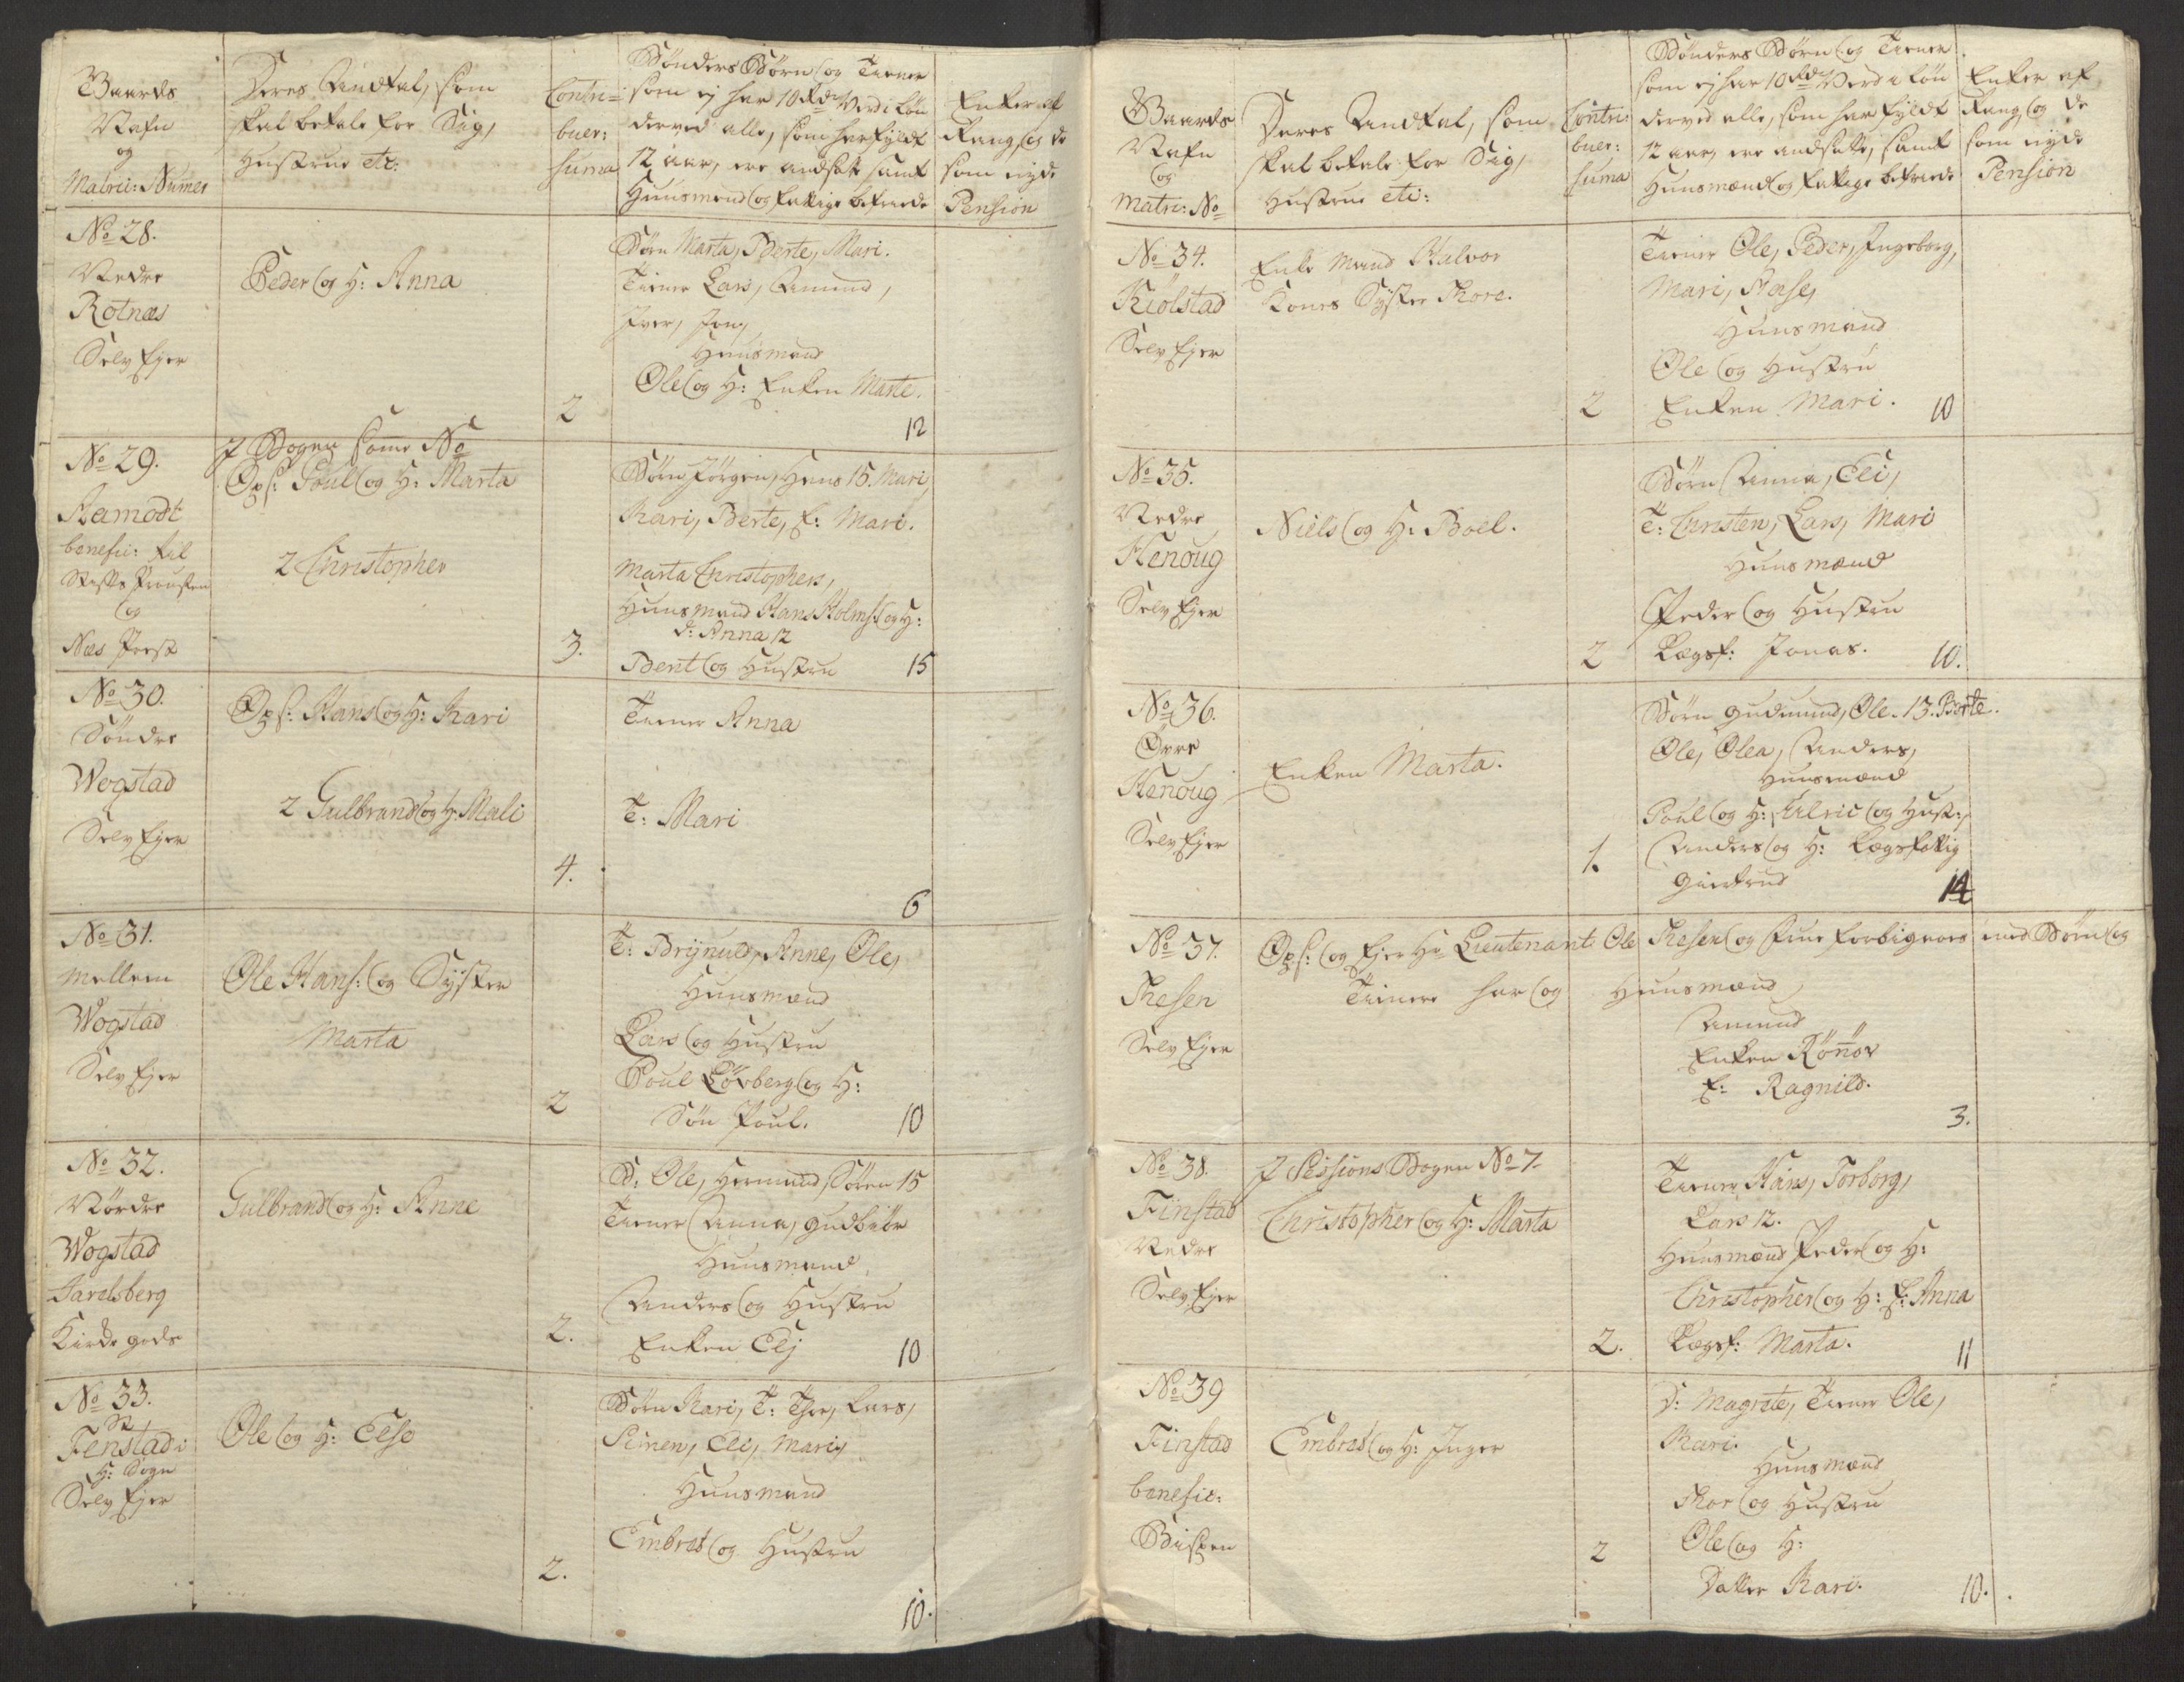 Gaards
Nafn
og
Matric: Numer
Deres Andtal, som
skal betale for Sig,
Hustrue etc:
Contri=
buer:
suma
Bønders Børn og Tiener
som ej har 10 Rdr Verd i Løn
derved alle, som har fyldt
12 aar, ere andsatte samt
Huusmænd og fattige befriede
Enker af
Rang, og de
som nyde
Pension
No 28.
Nedre
Rotnæs
Selv Ejer
Peder og H: Anna
2
Børn Marta, Berte, Mari.
Tiener Lars, Amund,
Iver, Jon,
Huusmænd
Ole og H: Enken Marte.
12
No 29.
Aamodt
benefic: til
Provsten
og
Næs Præst
I Bogen samme No
Ops: Poul og H: Marta
2 Christopher
3.
Børn Jörgen, Hans 15. Mari,
Kari, Berte, E: Mari.
Marta Christophers,
Huusmænd Hans Holms: og H:
d: Anna 12
Bent og Hustru 15
No 30.
Søndre
Wogstad
Selv Ejer
Ops: Hans og H: Kari
2 Gulbrand og H: Mali
4.
Tiener Anna
T: Mari
6
No 31.
Mellem
Wogstad
Selv Ejer
Ole Hans: og Syster
Marta
2
T: Brynild, Anne, Ole,
Huusmænd
Lars og Hustru
Poul Løvberg og H:
Søn Poul. 10
No 32.
Nördre
Wogstad
Jarelsberg
Kirke gods
Gulbrand og H: Anne
2.
B: Ole, Hermund, Sören 15
Tiener Anna, Gudbiör
Huusmænd
Anders og Hustru
Enken Elj 10
No 33.
St
Fenstad i
H: Sogn
Selv Ejer
Ole og H: Else
2.
Børn Kari, T: Thor, Lars,
Simen, Eli, Mari,
Huusmænd
Embret og Hustru
10.
Gaards
Nafn
og
Matri: No
Deres Andtal, som
skal betale for Sig,
Hustrue etc:
Contri:
buer:
suma
Bønders Børn og Tiener
som ej har 10 Rdr Verd i Løn
derved alle, som har fyldt
12 aar, ere andsatte, samt
Huusmænd og fattige befriede
Enker af
Rang, og de
som nyde
Pension
No 34.
Kiölstad
Selv Ejer
Enke Mand Halvor
Kones Syster Thore.
2
Tiener Ole, Peder, Ingeborg,
Mari, Aase,
Huusmænd
Ole og Hustru
Enken Mari. 10
No 35.
Nedre
Henoug
Selv Ejer
Niels og H: Boel.
2
Børn Anna, Eli,
T: Christen, Lars, Mari
Huusmænd
Peder og Hustru
Lægsf: Jonas. 10.
No 36.
Øvre
Henoug
Selv Ejer
Enken Marta.
1.
Børn Gudmund, Ole. 13. Berte.
Ole, Olea, Anders,
Huusmænd
Poul og H: Ulric og Hust:,
Anders og H: Lægsfattig
Giertrud 14
No 37.
Thesen
Selv Ejer
Ops: og Ejer Hr Lieutenant: Ole Thesen og Frue forbigaaes med Børn og
Tienere har og Huusmænd
Amund
Enken Rönnov
E: Ragnild.
3.
No 38.
Finstad
Nedre
Selv Ejer
I Sessions Bogen No 7.
Christopher og H: Marta
2.
Tiener Hans, Torborg,
Lars 12.
Huusmænd Peder og H:
Christopher og H: E: Anna
Lægsf: Marta. 11
No 39
Finstad
benefic:
Bispen
Embret og H: Inger
2
D: Magrete, Tiener Ole,
Kari.
Huusmænd
Thor og Hustru
Ole og H:
Datter Kari. 10.